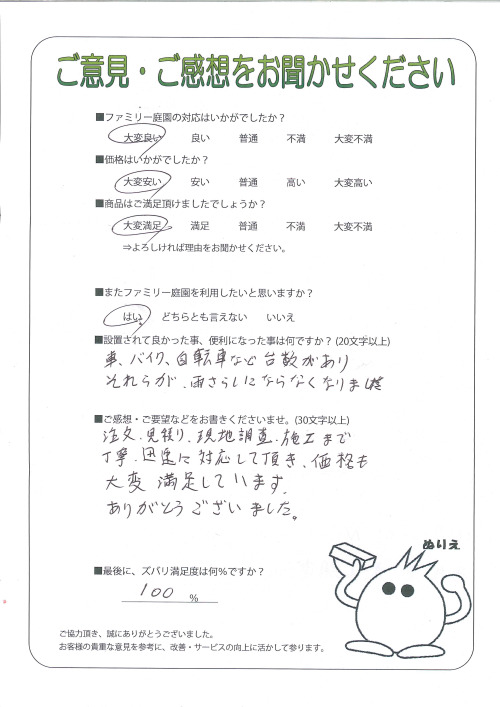 ご意見・ご感想をお聞かせください
■ファミリー庭園の対応はいかがでしたか？
大変良い 良い 普通 不満 大変不満
■価格はいかがでしたか？
大変安い 安い 普通 高い 大変高い
■商品はご満足頂けましたでしょうか？
大変満足 満足 普通 不満 大変不満
⇒よろしければ理由をお聞かせください。
■またファミリー庭園を利用したいと思いますか？
はい。 どちらとも言えない いいえ
■設置されて良かった事、便利になった事は何ですか？(20文字以上)
車、バイク、自転車など台数があり
それらが、雨さらしにならなくなりました
■ご感想・ご要望などをお書きくださいませ。(30文字以上)
注文.見積り、現地調査.施工まで
丁寧.迅速に対応して頂き、価格も
大変満足しています.
ありがとうございました。
ぬりえ
■最後に、ズバリ満足度は何％ですか？
100 ％
ご協力頂き、誠にありがとうございました。
お客様の貴重な意見を参考に、改善・サービスの向上に活かして参ります。